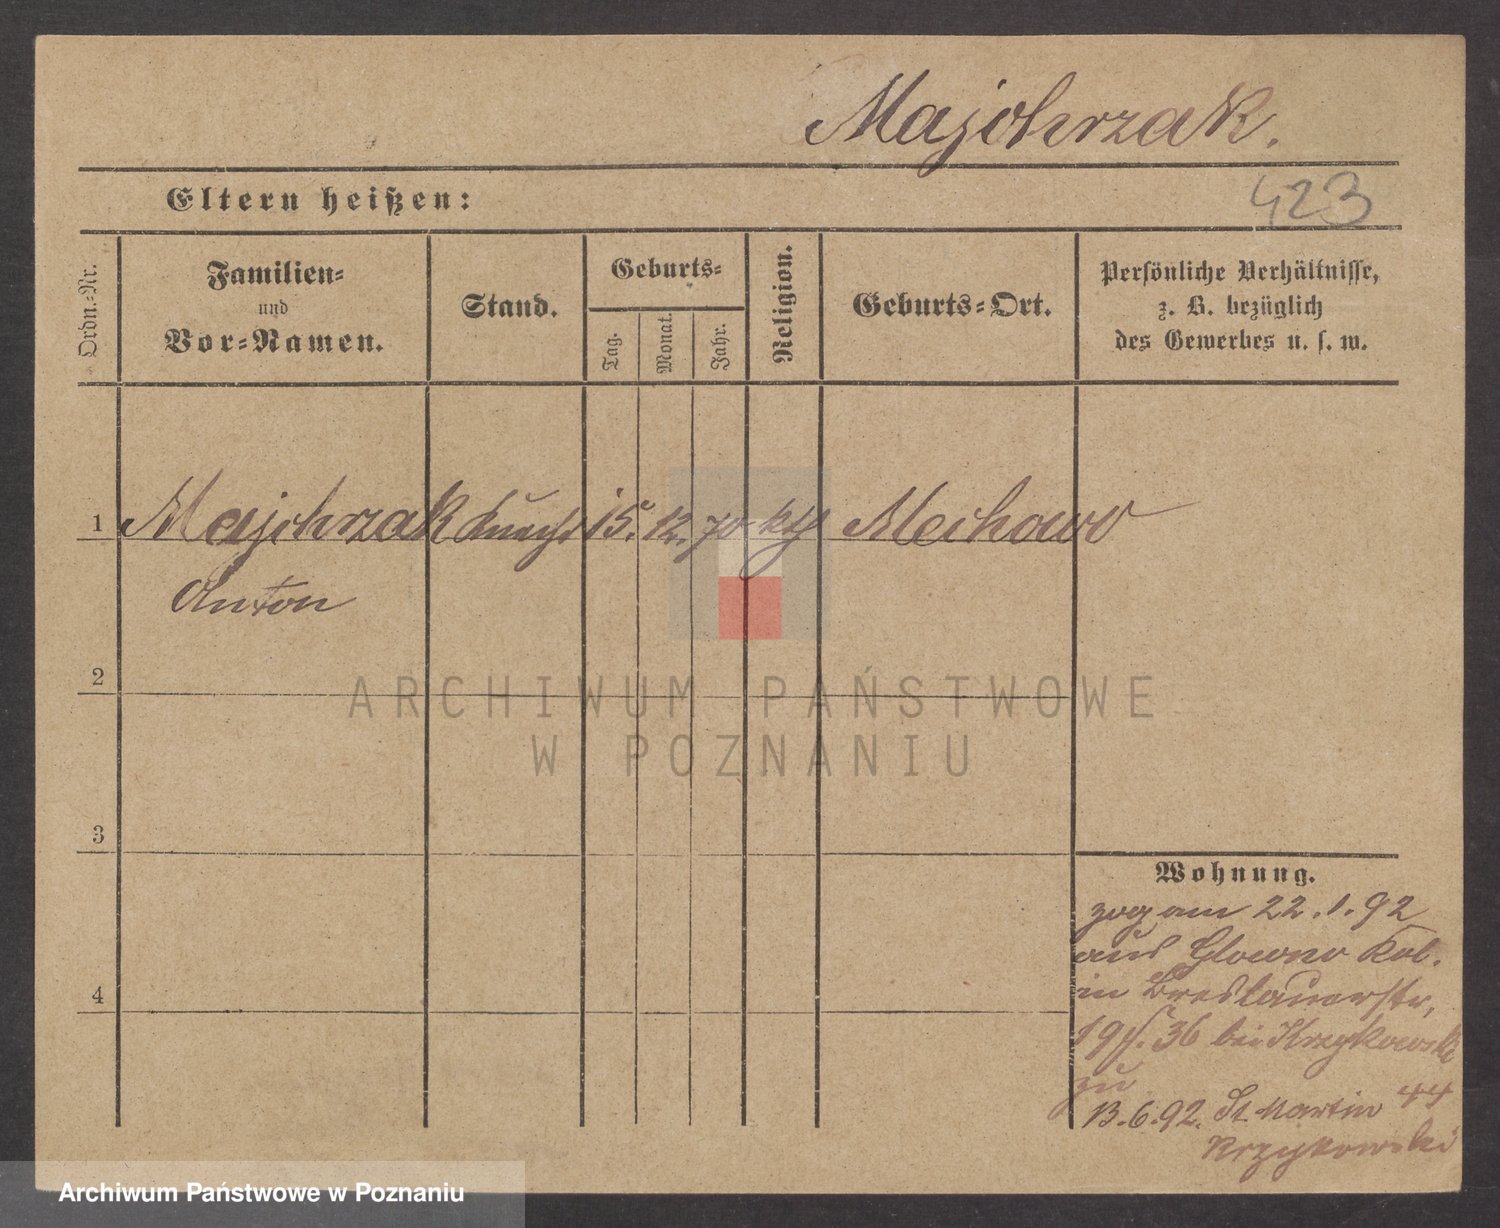 Majchrzak.
Eltern heißen:
423
Ordn.-Nr.
Familien-
und
Vor-Namen.
Stand.
Geburts-
Tag.
Monat.
Jahr.
Religion.
Geburts-Ort.
Persönliche Verhältnisse,
z. B. bezüglich
des Gewerbes u. s. w.
1 Majchrzak Knecht 15. 12. 70 kth Mechowo
Anton
2
ARCHIWUM PAŃSTWOWE
W POZNANIU
3
Wohnung.
zog am 22.1.92
aus Glowno Kol.
in Breslauerstr,
4
36 bei Krzykowski
zu
13.6.92. St. Martin 44
Krzykowski
Archiwum Państwowe w Poznaniu